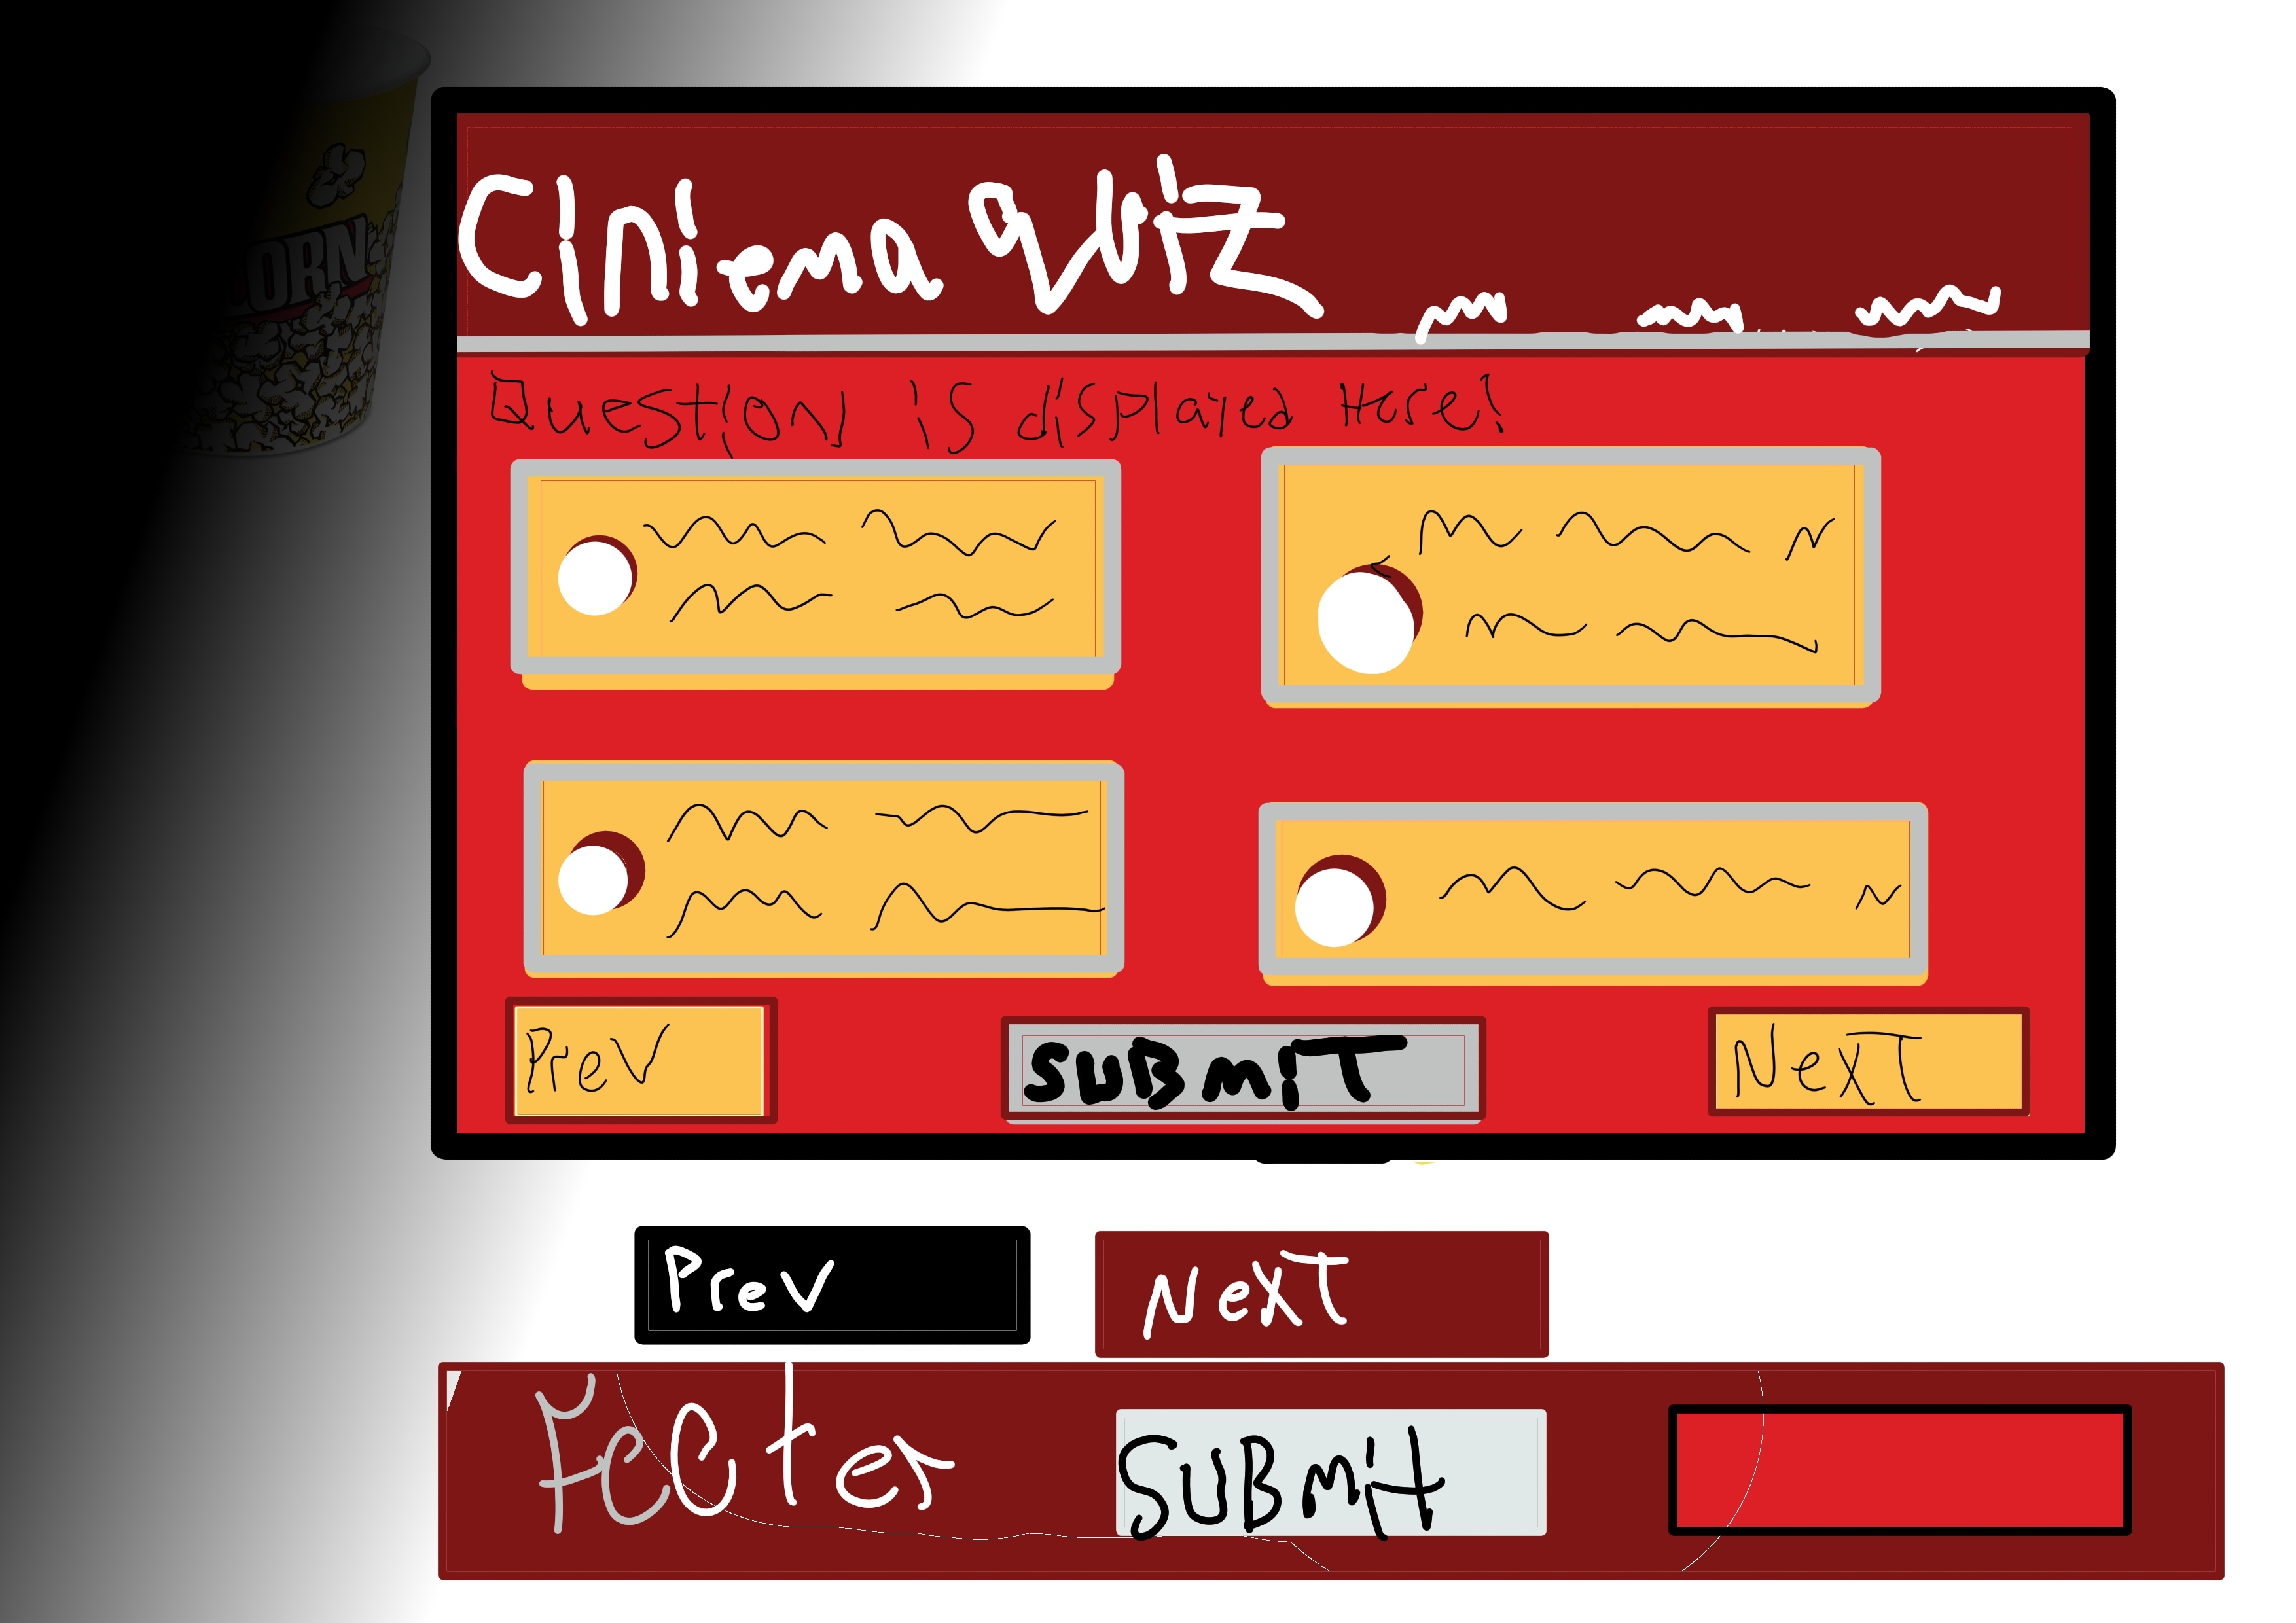 ORN
Cinema Quiz
Question is displayed Here!
Prev
SUBMIT
NexT
Prev
NexT
Footer
SUBmit